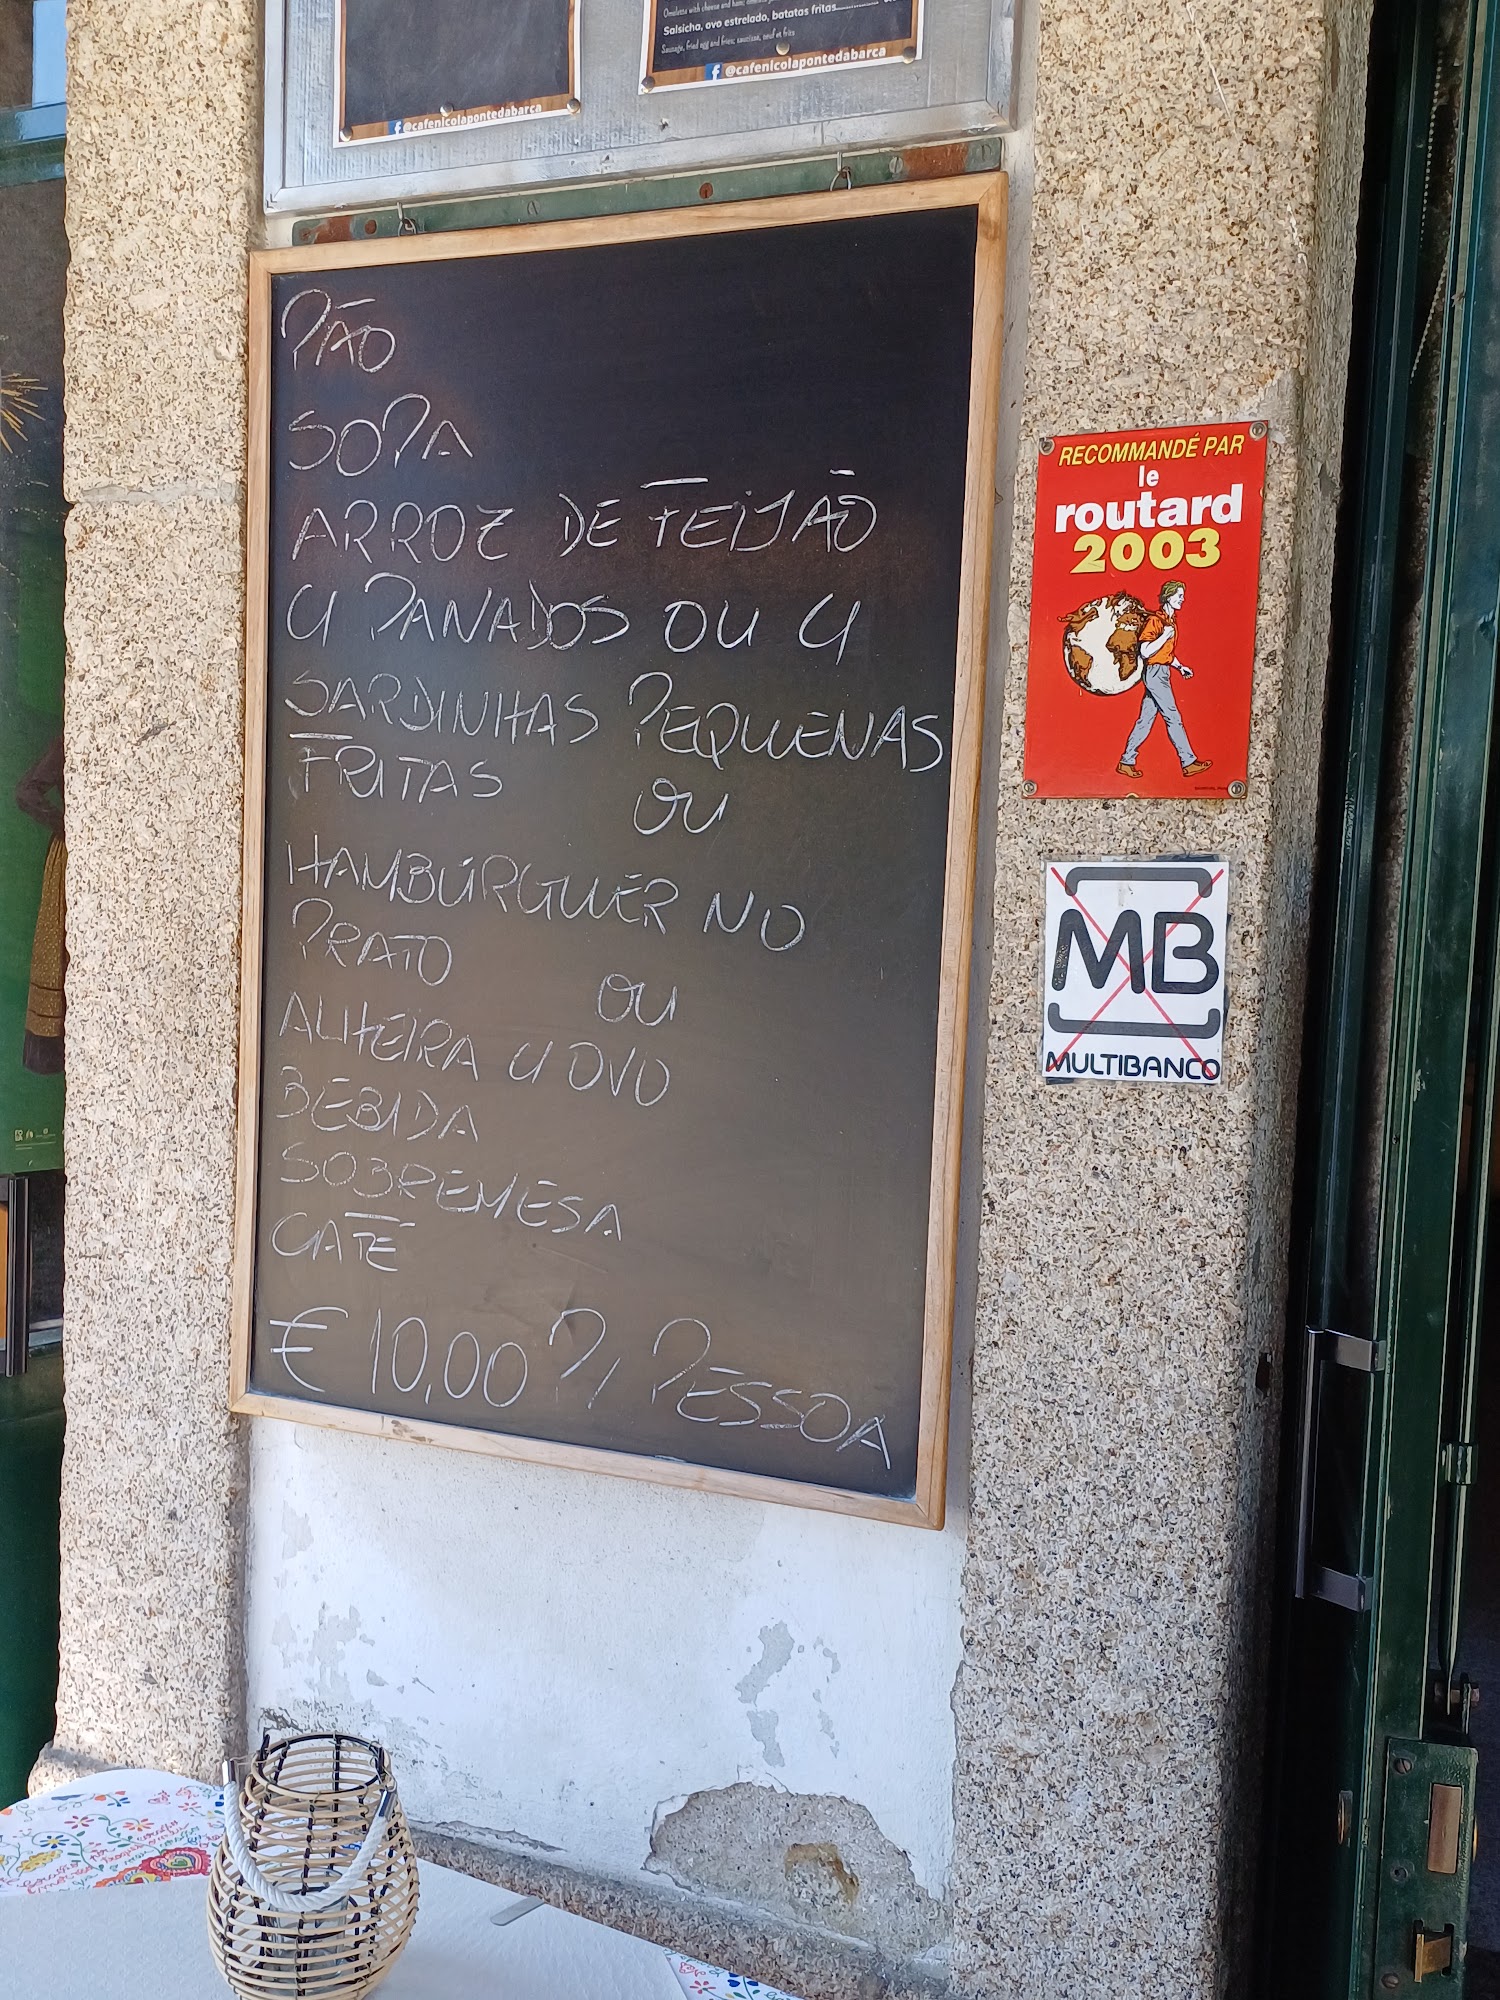 Omelette with cheese and ham;
Salsicha, ovo estrelado, batatas fritas
Sausage, fried egg and fries; saucisse, oeuf et frites
@cafenicolapontedabarca
@cafenicolapontedabarca
PÃO
SOPA
ARROZ DE FEIJÃO
C/ PANADOS OU C/
SARDINHAS PEQUENAS
FRITAS OU
HAMBÚRGUER NO
PRATO OU
ALHEIRA C/ OVO
BEBIDA
SOBREMESA
CAFÉ
€ 10,00 P/ PESSOA
RECOMMANDÉ PAR
le
routard
2003
MB
MULTIBANCO